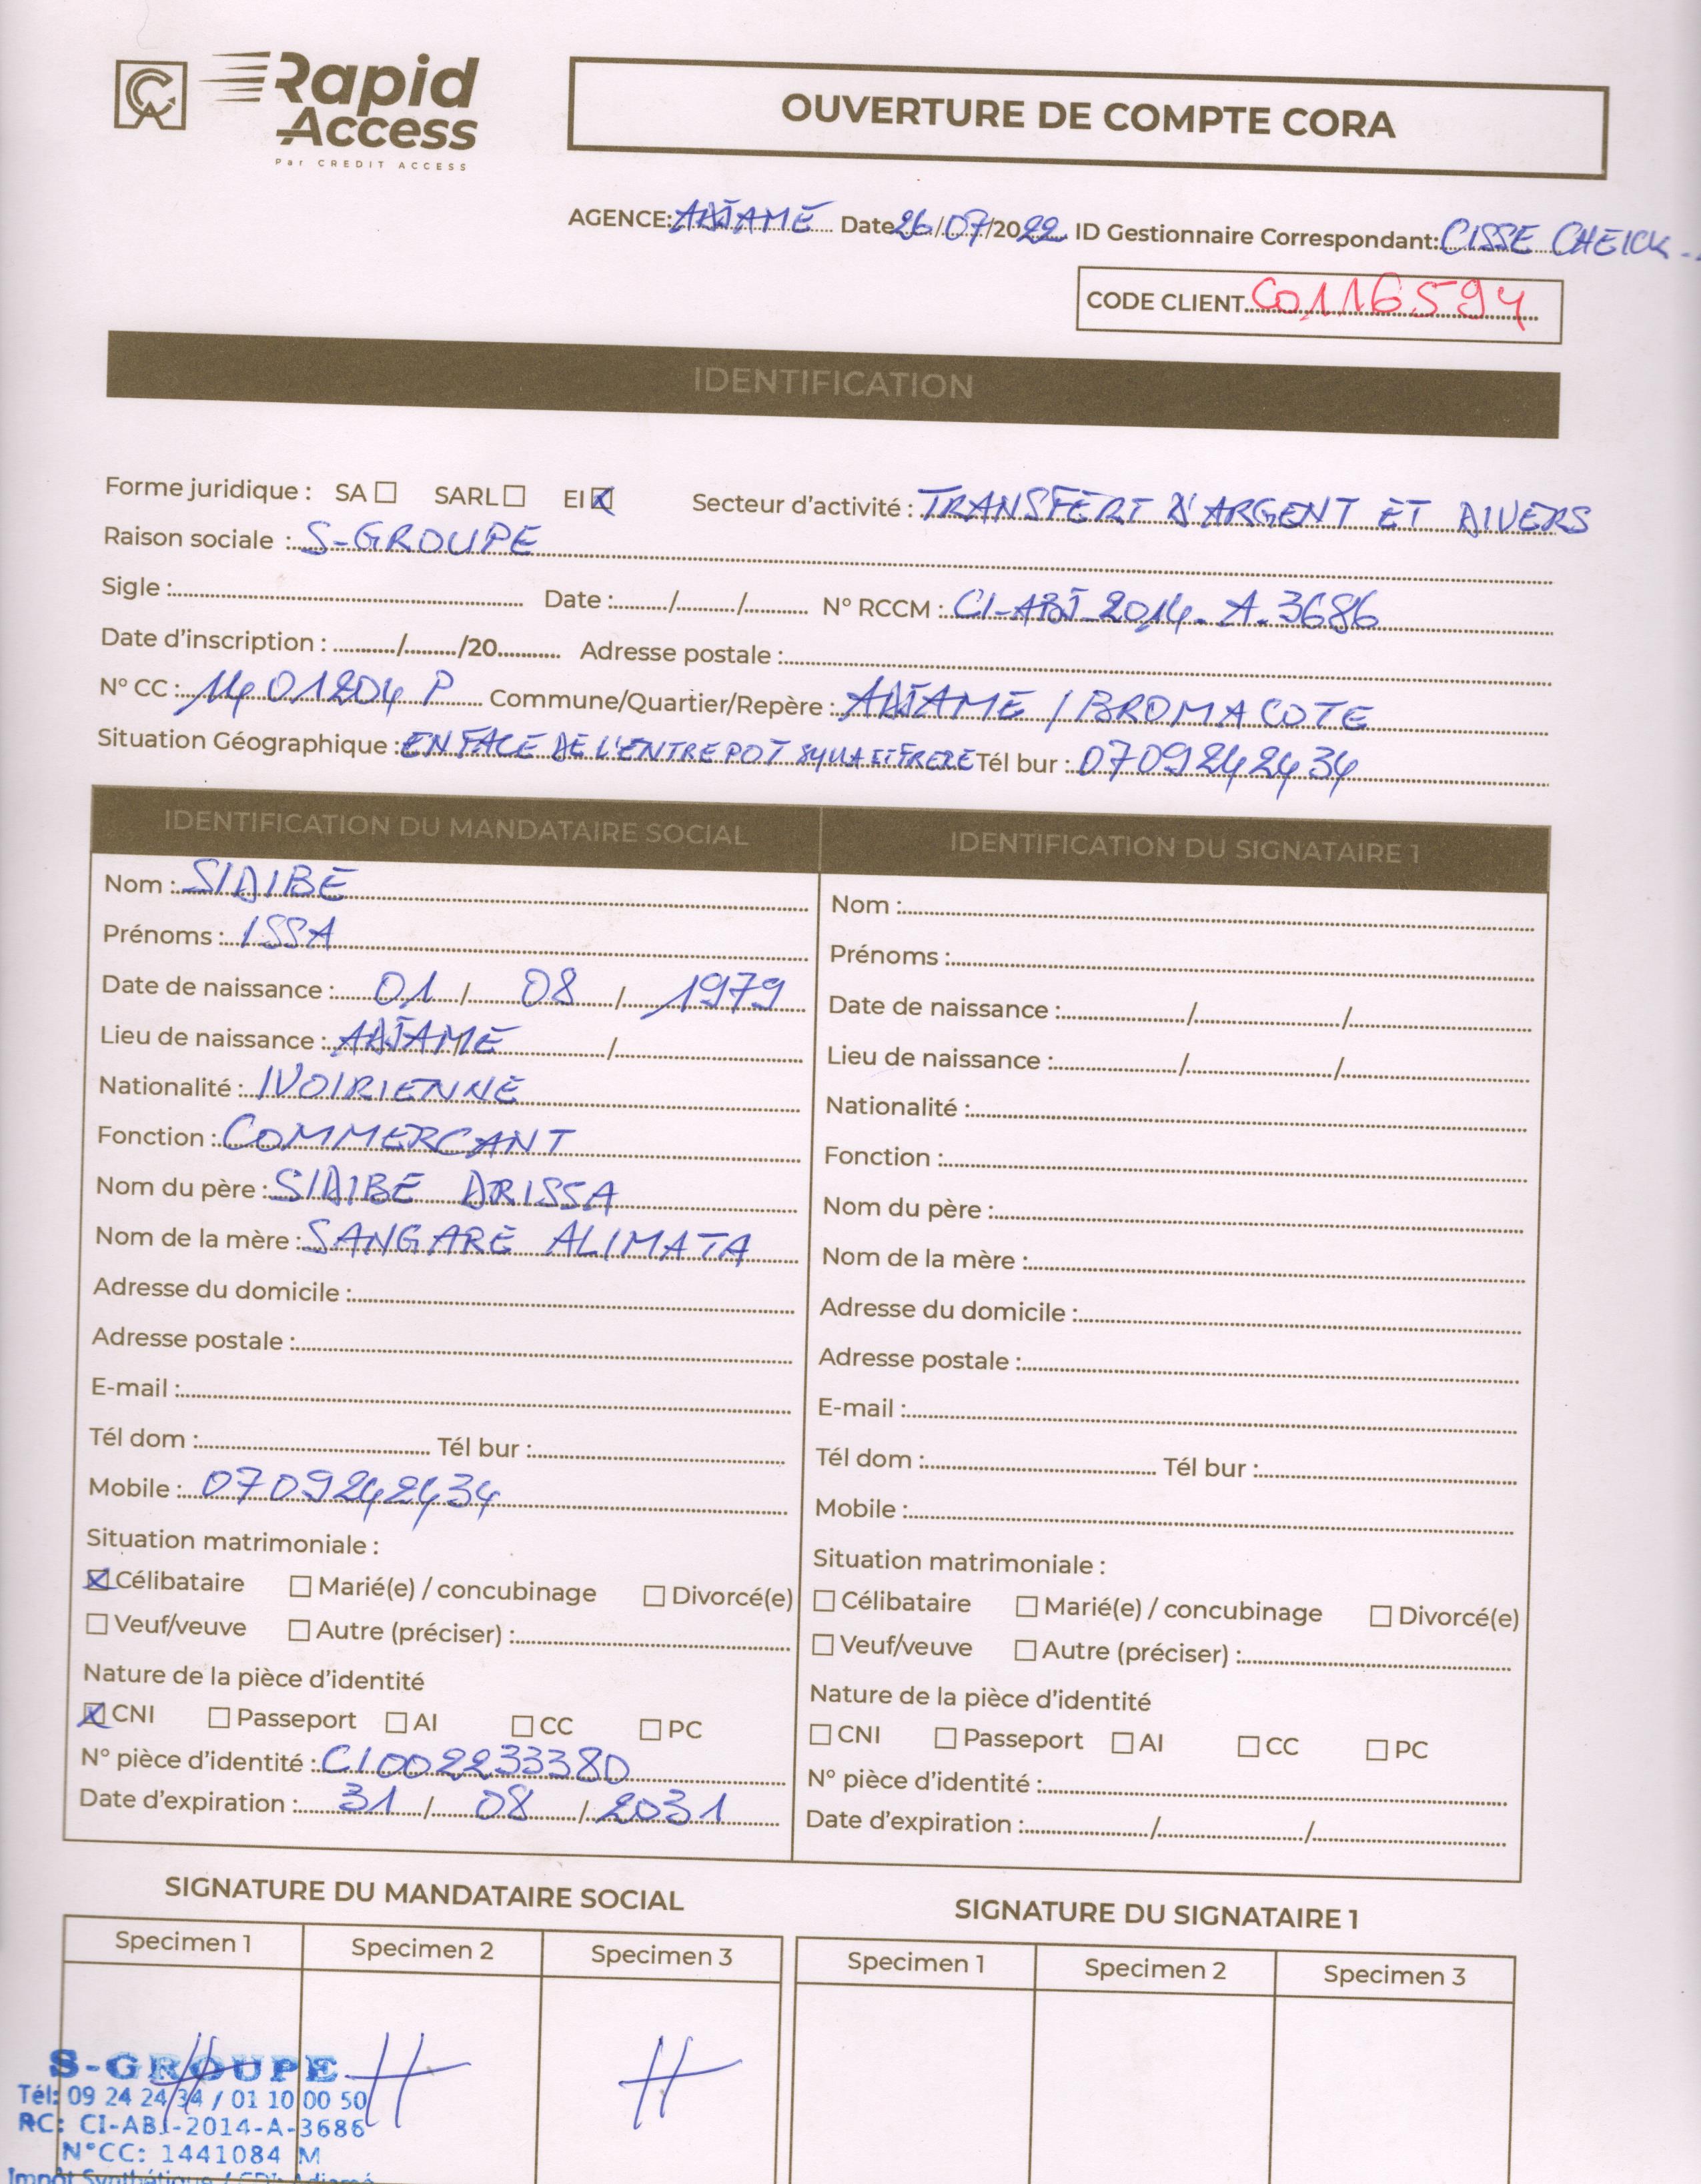 Rapid
Access
Par CREDIT ACCESS
OUVERTURE DE COMPTE CORA
AGENCE: ADJAMÉ Date 26/07/2022 ID Gestionnaire Correspondant: CISSE CHEICK
CODE CLIENT C0116594
IDENTIFICATION
Forme juridique : SA ☐ SARL ☐ EI ☒ Secteur d'activité : TRANSFERT D'ARGENT ET DIVERS
Raison sociale : S-GROUPE
Sigle : Date : / / N° RCCM : CI-ABJ-2014-A-3686
Date d'inscription : / /20 Adresse postale :
N° CC : 1401204 P Commune/Quartier/Repère : ADJAMÉ / BROMACOTE
Situation Géographique : EN FACE DE L'ENTREPOT SYLLA ET FRERE Tél bur : 0709242434
IDENTIFICATION DU MANDATAIRE SOCIAL
Nom : SIDIBÉ
Prénoms : ISSA
Date de naissance : 01 / 08 / 1979
Lieu de naissance : ADJAMÉ /
Nationalité : IVOIRIENNE
Fonction : COMMERCANT
Nom du père : SIDIBÉ DRISSA
Nom de la mère : SANGARÉ ALIMATA
Adresse du domicile :
Adresse postale :
E-mail :
Tél dom : Tél bur :
Mobile : 0709242434
Situation matrimoniale :
☒ Célibataire ☐ Marié(e) / concubinage ☐ Divorcé(e)
☐ Veuf/veuve ☐ Autre (préciser) :
Nature de la pièce d'identité
☒ CNI ☐ Passeport ☐ AI ☐ CC ☐ PC
N° pièce d'identité : CI002233380
Date d'expiration : 31 / 08 / 2031
IDENTIFICATION DU SIGNATAIRE 1
Nom :
Prénoms :
Date de naissance : / /
Lieu de naissance : / /
Nationalité :
Fonction :
Nom du père :
Nom de la mère :
Adresse du domicile :
Adresse postale :
E-mail :
Tél dom : Tél bur :
Mobile :
Situation matrimoniale :
☐ Célibataire ☐ Marié(e) / concubinage ☐ Divorcé(e)
☐ Veuf/veuve ☐ Autre (préciser) :
Nature de la pièce d'identité
☐ CNI ☐ Passeport ☐ AI ☐ CC ☐ PC
N° pièce d'identité :
Date d'expiration : / /
SIGNATURE DU MANDATAIRE SOCIAL
Specimen 1 Specimen 2 Specimen 3
SIGNATURE DU SIGNATAIRE 1
Specimen 1 Specimen 2 Specimen 3
S-GROUPE
Tél: 09 24 24 34 / 01 10 00 50
RC: CI-ABJ-2014-A-3686
N°CC: 1441084 M
Impôt Synthétique / CDI: Adjamé